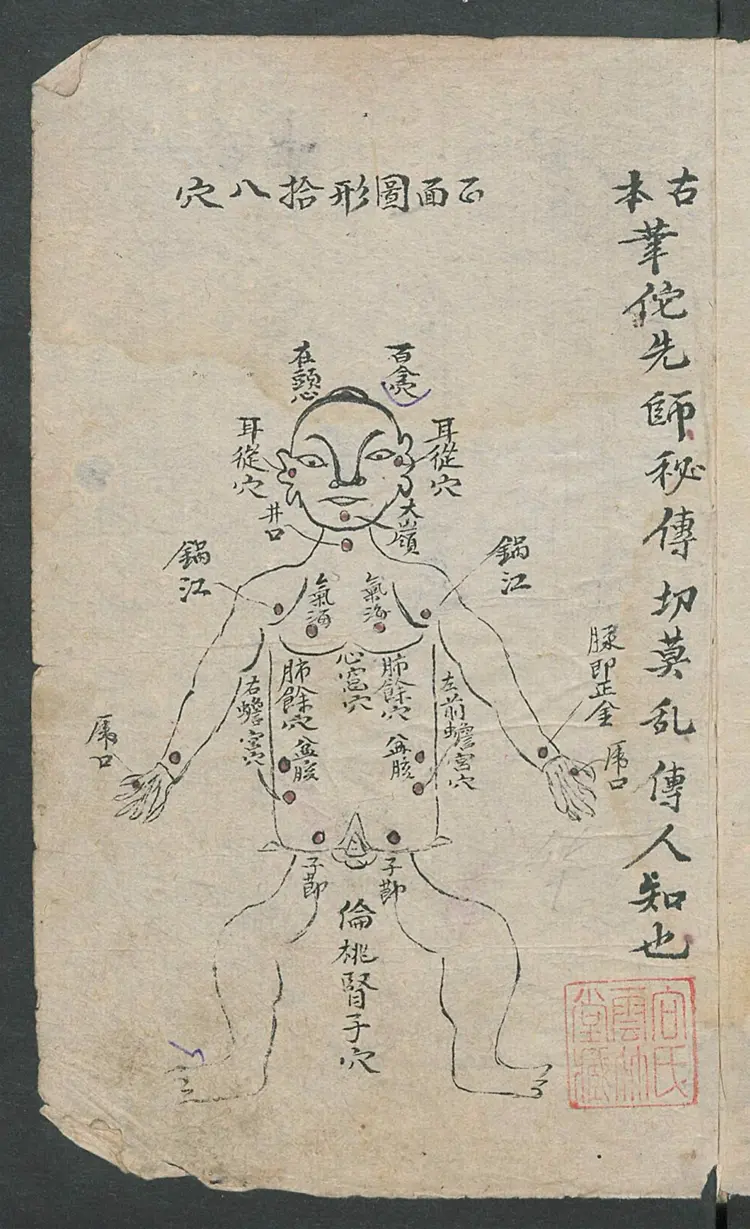 古本華佗先師秘傳切莫乱傳人知也
正面圖形拾八穴
百會穴
在頭心
耳從穴
耳從穴
大嶺
井口
鍋江
鍋江
氣海
氣海
心窩穴
肺餘穴
肺餘穴
左前蟾宮穴
右蟾宮穴
盆胲
盆胲
脉即正金
虎口
虎口
子莭
子莭
倫桃腎子穴
宮氏
雲林
堂藏